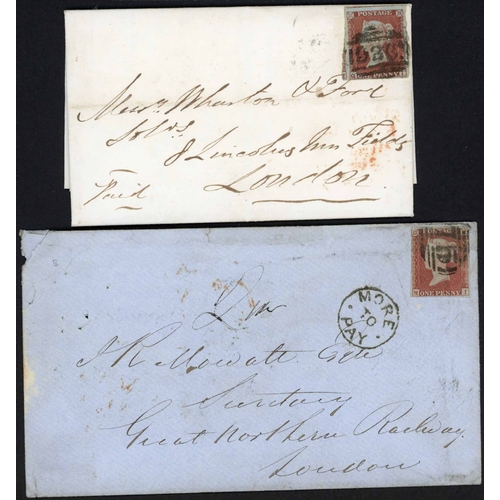 POSTAGE
ONE PENNY
Messrs Wharton & Ford
Solrs
8 Lincolns Inn Fields
Paid
London
POSTAGE
ONE PENNY
MORE
TO
PAY
J R Mowatt Esqre
Secretary
Great Northern Railway
London